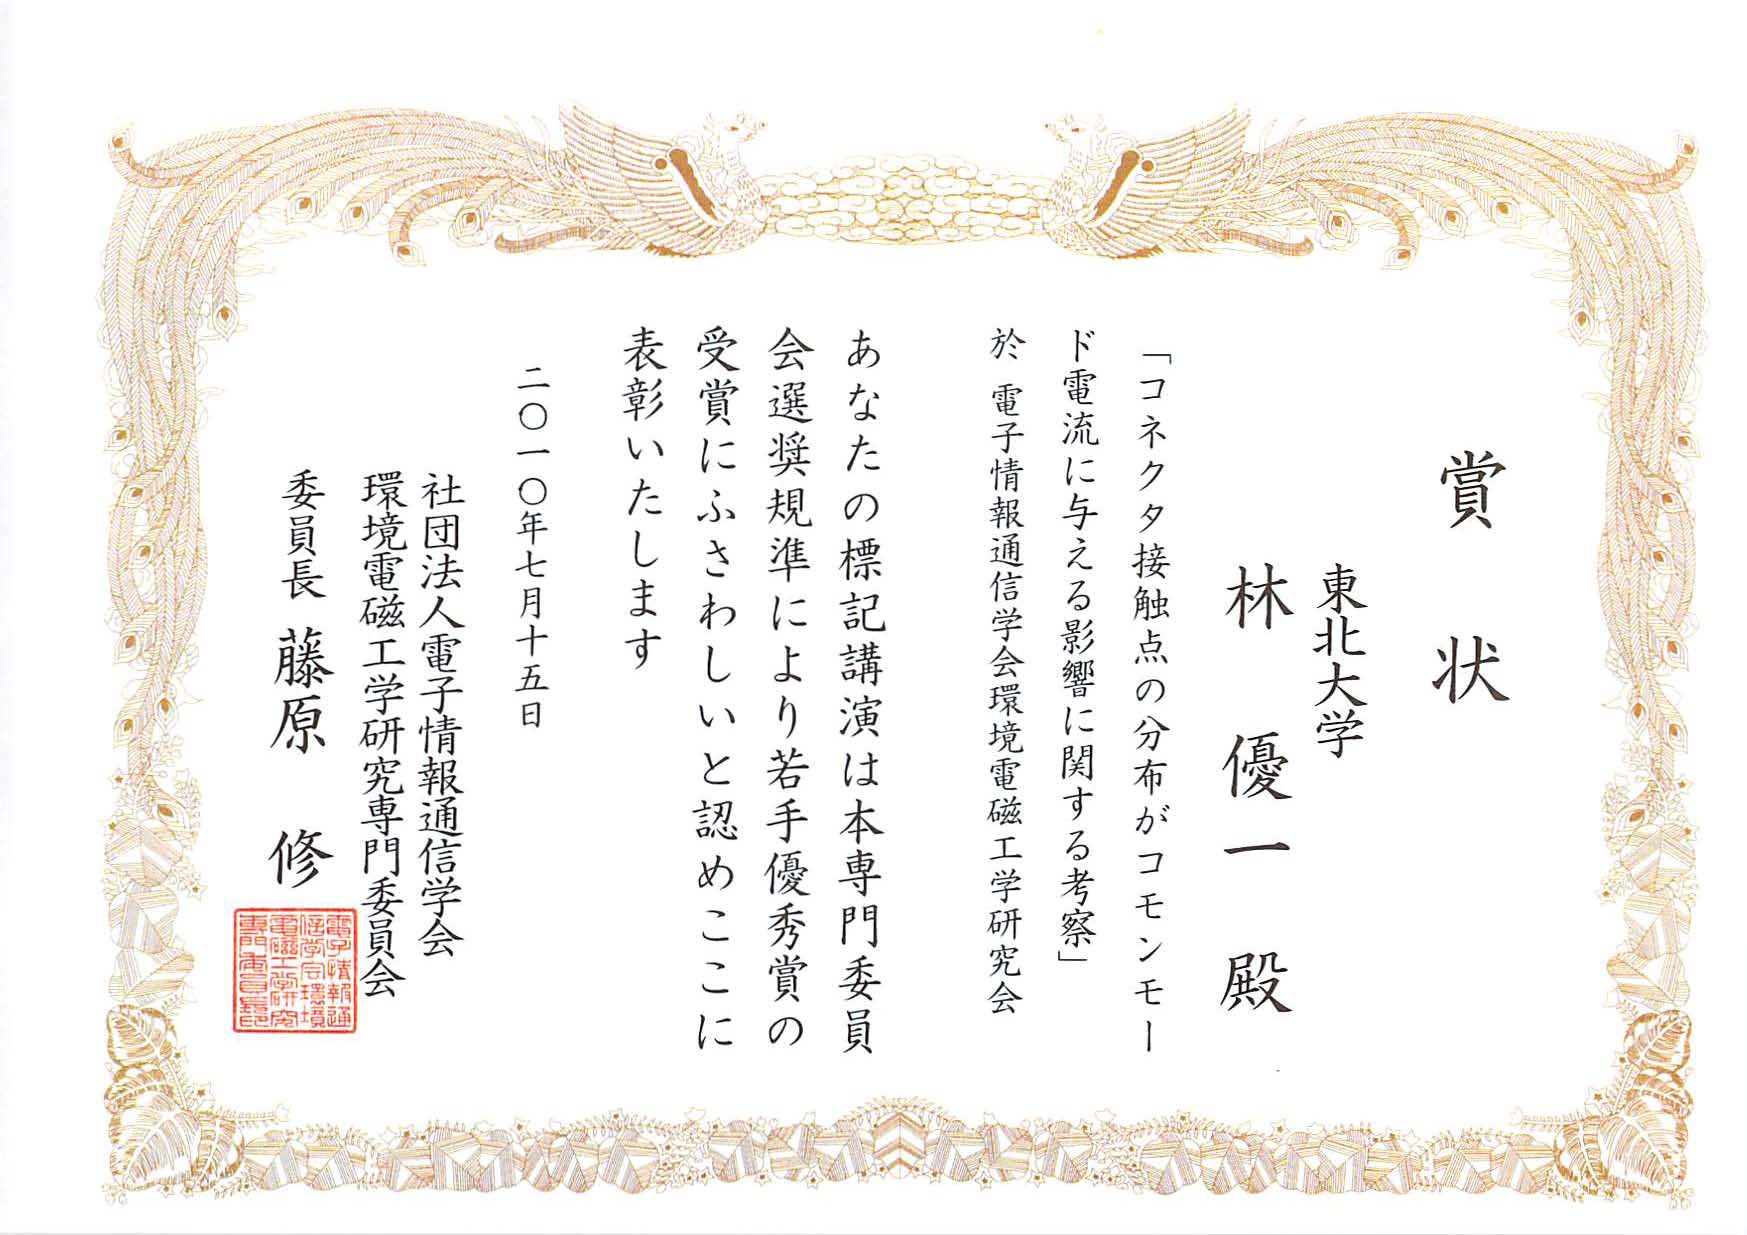 賞状
東北大学
林 優一 殿
「コネクタ接触点の分布がコモンモー
ド電流に与える影響に関する考察」
於 電子情報通信学会環境電磁工学研究会
あなたの標記講演は本専門委員
会選奨規準により若手優秀賞の
受賞にふさわしいと認めここに
表彰いたします
二〇一〇年七月十五日
社団法人電子情報通信学会
環境電磁工学研究専門委員会
委員長 藤原 修
電子情報通
信学会環境
電磁工学研究
専門委員長印